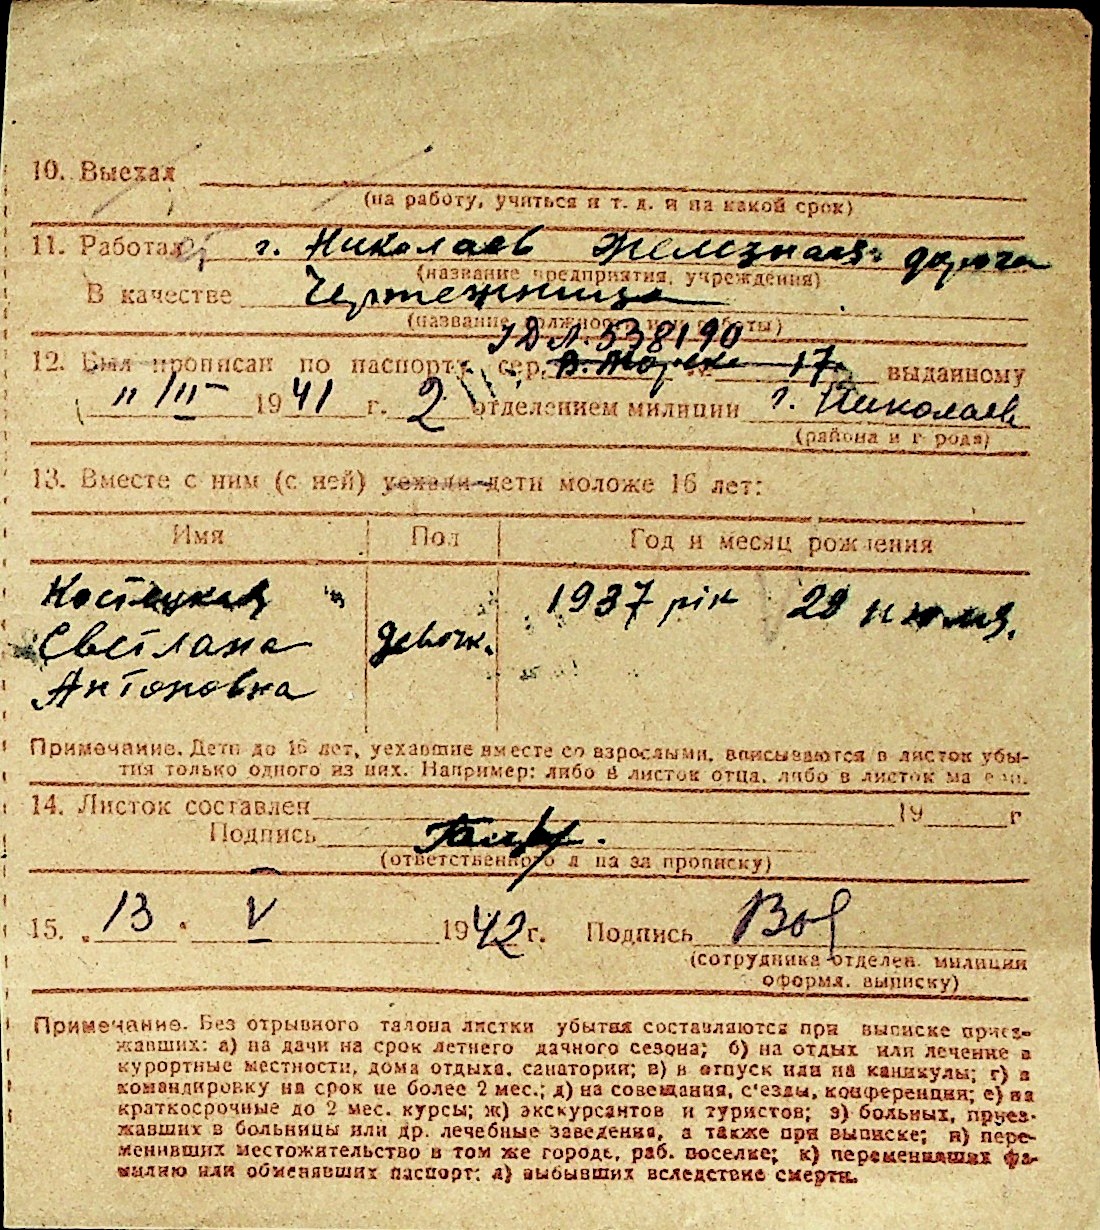 10. Выехал
(на работу, учиться и т. д. и на какой срок)
11. Работал г. Николаев Железная дорога
(название предприятия, учреждения)
В качестве Чертежница
(название должности или работы)
IДЛ.538190
12. Был прописан по паспорту сер. 17 выданному
" III 1941 г. 2 отделением милиции г. Николаев
(района и города)
13. Вместе с ним (с ней) уехали дети моложе 16 лет:
Имя Пол Год и месяц рождения
Костецкая 1937 рік 29 июля.
Светлана Девочк.
Антоновна
Примечание. Дети до 16 лет, уехавшие вместе со взрослыми, вписываются в листок убы-
тия только одного из них. Например: либо в листок отца, либо в листок матери.
14. Листок составлен 19 г
Подпись
(ответственного лица за прописку)
15. „13 " V 1942 г. Подпись
(сотрудника отделен. милиции
оформл. выписку)
Примечание. Без отрывного талона листки убытия составляются при выписке приез-
жавших: а) на дачи на срок летнего дачного сезона; б) на отдых или лечение в
курортные местности, дома отдыха, санатории; в) в отпуск или на каникулы; г) в
командировку на срок не более 2 мес.; д) на совещания, с'езды, конференции; е) на
краткосрочные до 2 мес. курсы; ж) экскурсантов и туристов; з) больных, приез-
жавших в больницы или др. лечебные заведения, а также при выписке; и) пере-
менивших местожительство в том же городе, раб. поселке; к) переменивших фа-
милию или обменявших паспорт; л) выбывших вследствие смерти.